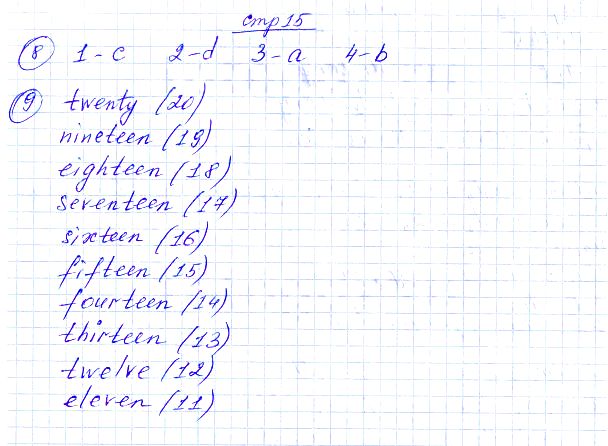 стр 15
8 1-c 2-d 3-a 4-b
9 twenty (20)
nineteen (19)
eighteen (18)
seventeen (17)
sixteen (16)
fifteen (15)
fourteen (14)
thirteen (13)
twelve (12)
eleven (11)